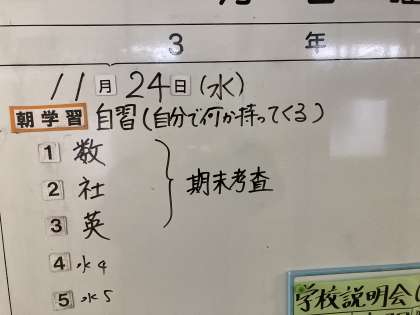 3 年
11月24日(水)
朝学習 自習(自分で何か持ってくる)
1 数
2 社
3 英
期末考査
4 水4
5 水5
学校説明会(